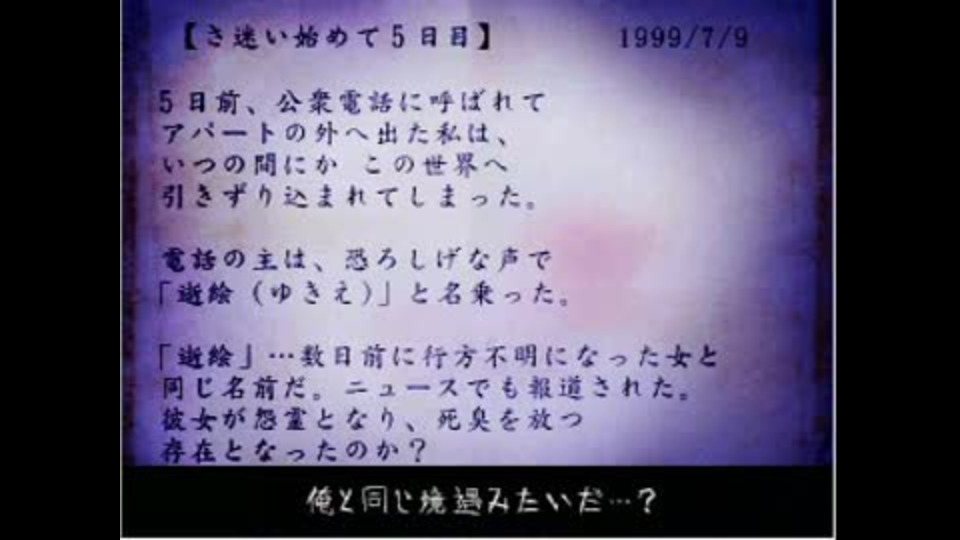 【さ迷い始めて5日目】 1999/7/9
5日前、公衆電話に呼ばれて
アパートの外へ出た私は、
いつの間にか この世界へ
引きずり込まれてしまった。
電話の主は、恐ろしげな声で
「逝絵(ゆきえ)」と名乗った。
「逝絵」…数日前に行方不明になった女と
同じ名前だ。ニュースでも報道された。
彼女が怨霊となり、死臭を放つ
存在となったのか?
俺と同じ境遇みたいだ…?